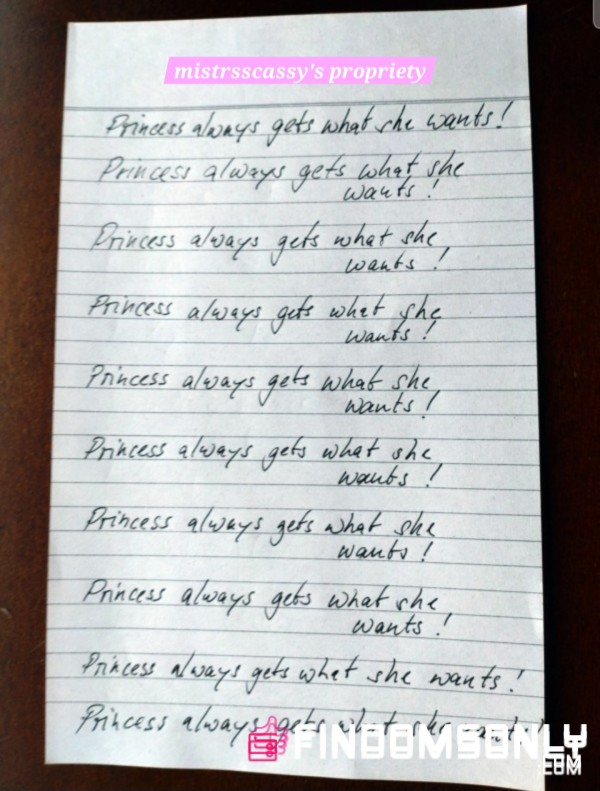 mistrsscassy's propriety
Princess always gets what she wants!
Princess always gets what she
wants!
Princess always gets what she
wants!
Princess always gets what she
wants!
Princess always gets what she
wants!
Princess always gets what she
wants!
Princess always gets what she
wants!
Princess always gets what she
wants!
Princess always gets what she wants!
Princess always gets what she wants!
FINDOMSONLY
.COM